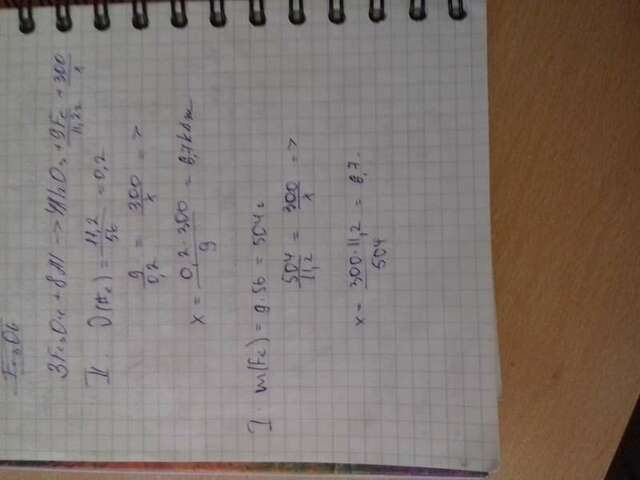 Fe₃O₄
3Fe₃O₄ + 8Al -> 4Al₂O₃ + 9Fe + 300
11,2г x
II. ϑ(Fe) = 11,2/56 = 0,2
9/0,2 = 300/x =>
x = 0,2·300/9 = 6,7 кДж
I. m(Fe) = 9·56 = 504 г
504/11,2 = 300/x =>
x = 300·11,2/504 = 6,7.